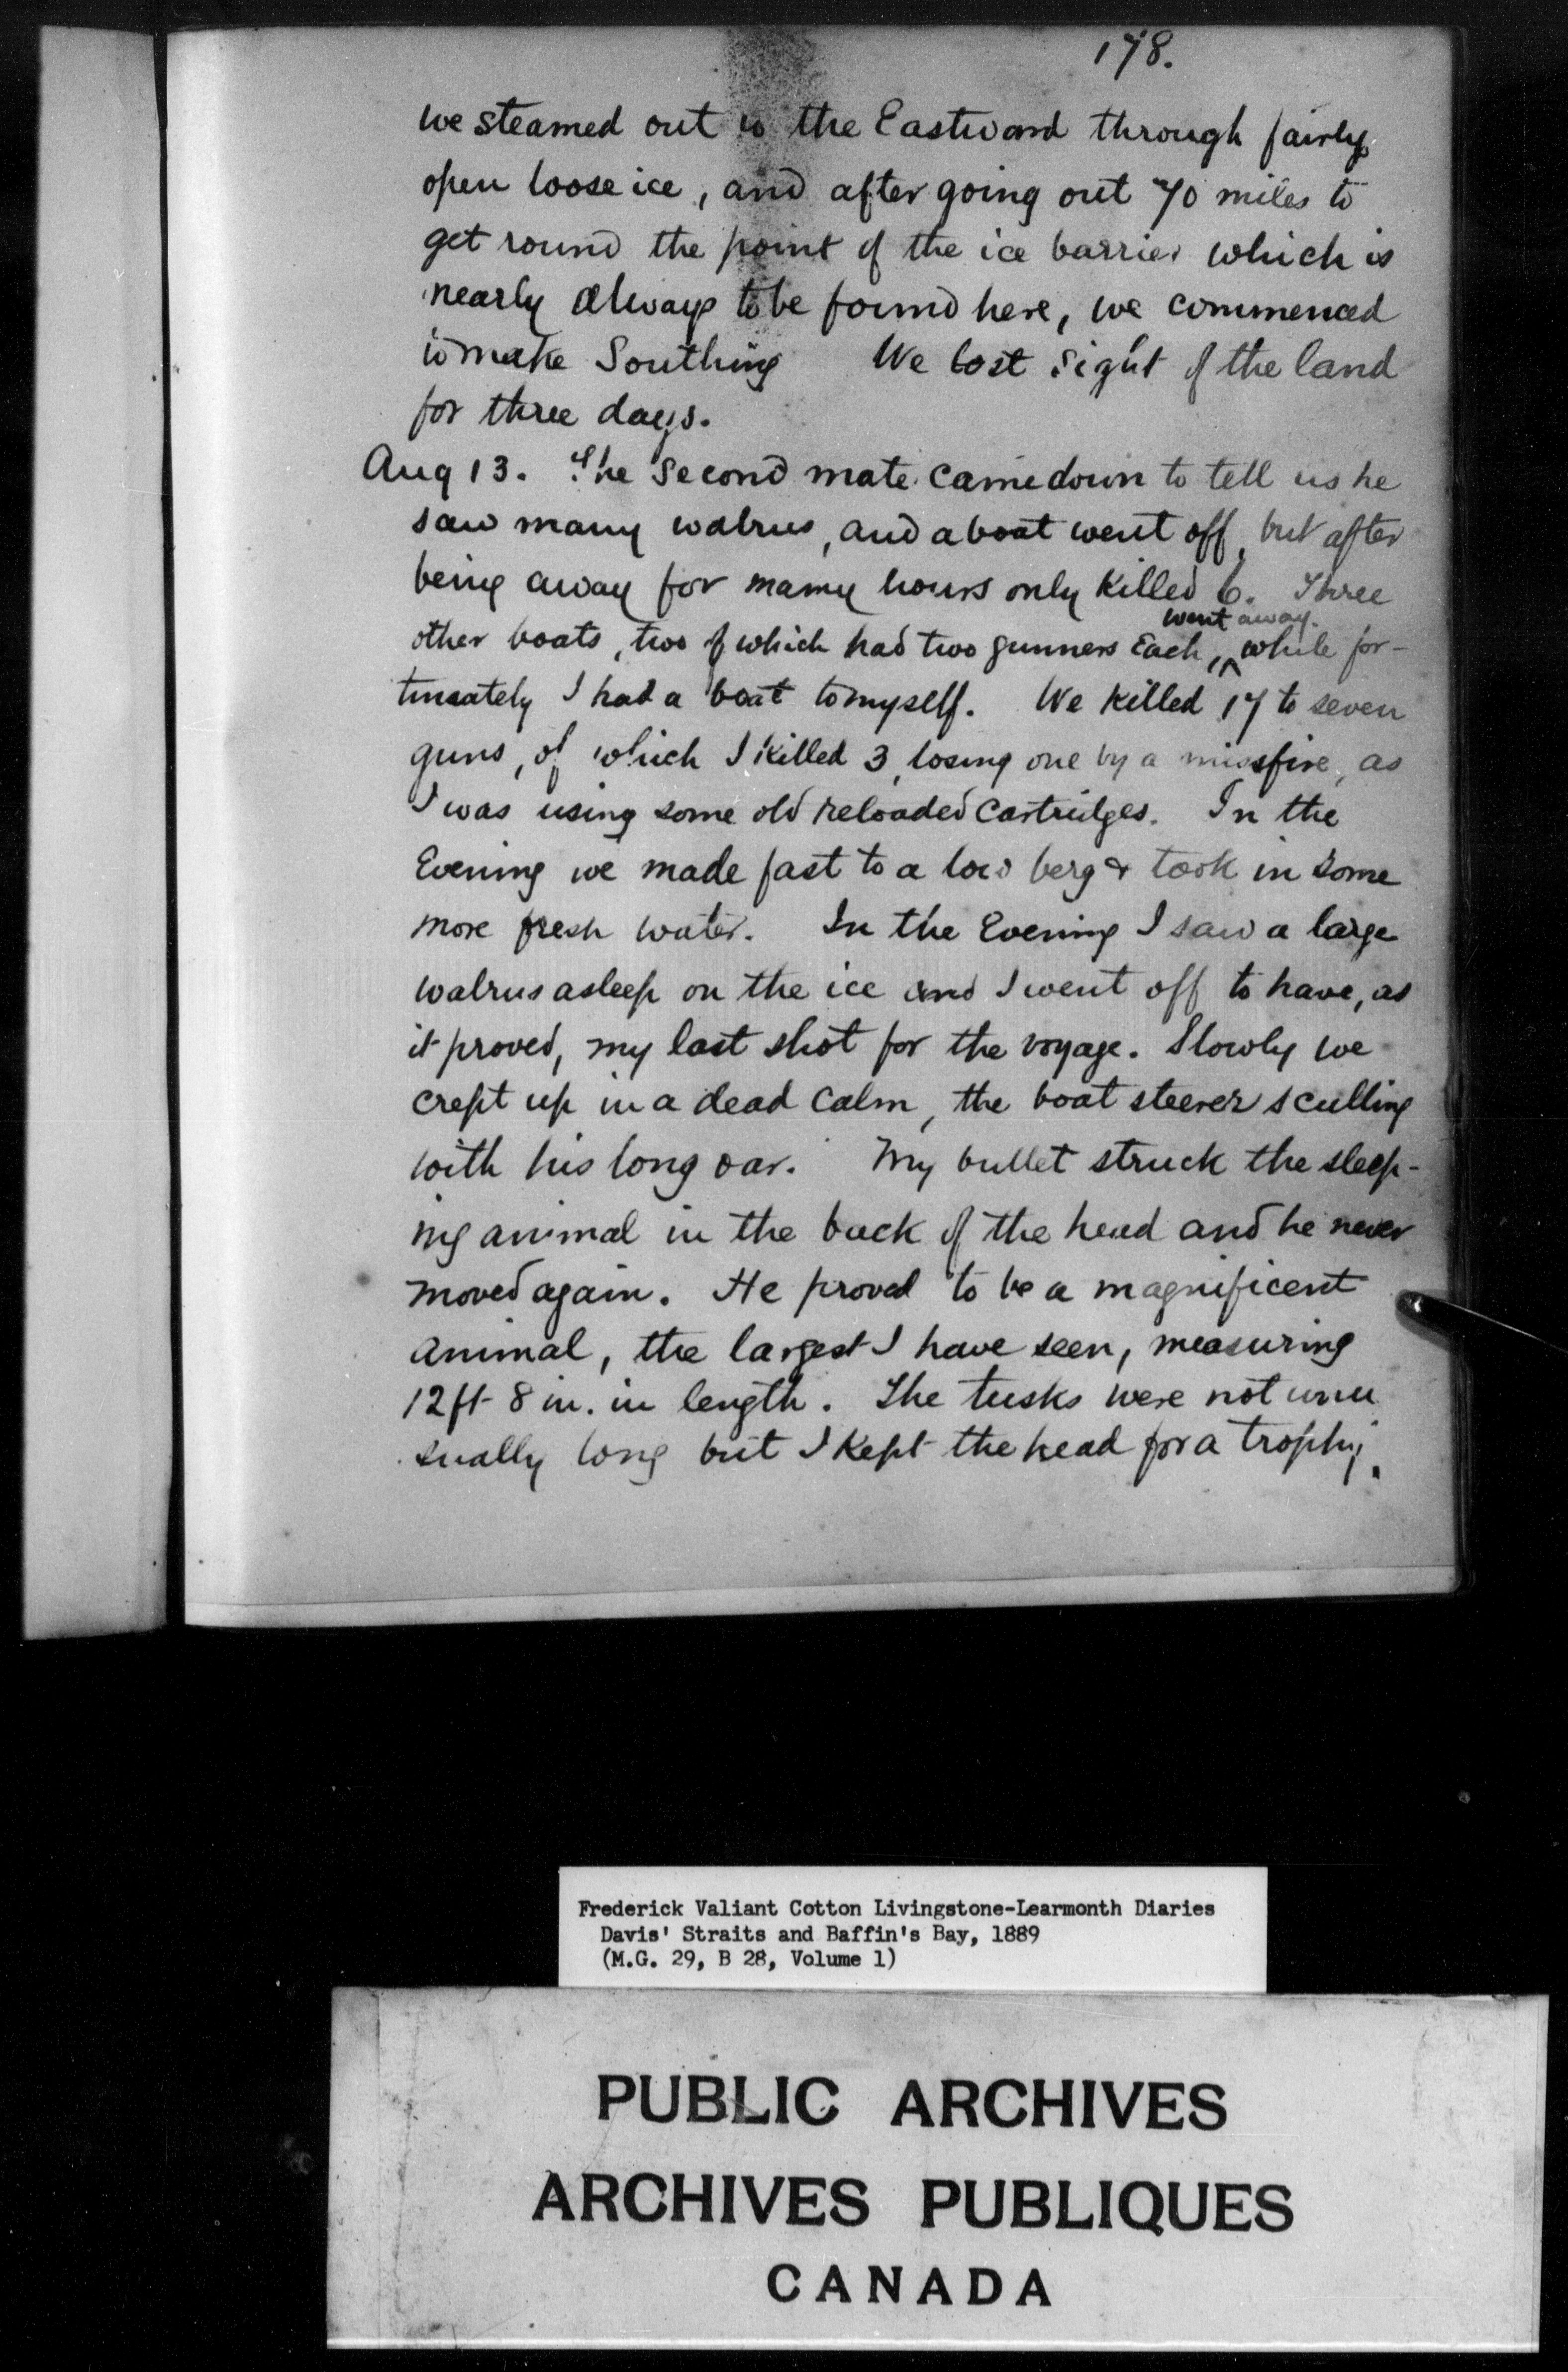 178.
we steamed out to the Eastward through fairly
open loose ice, and after going out 70 miles to
get round the point of the ice barrier which is
nearly always to be found here, we commenced
to make Southing We lost sight of the land
for three days.
Aug 13. The Second mate came down to tell us he
saw many walrus, and a boat went off, but after
being away for many hours only killed 6. Three
went away.
other boats, two of which had two gunners Each, ^ while for-
tunately I had a boat to myself. We killed 17 to seven
guns, of which I killed 3, losing one by a missfire, as
I was using some old reloaded cartridges. In the
Evening we made fast to a low berg & took in some
more fresh water. In the Evening I saw a large
walrus asleep on the ice and I went off to have, as
it proved, my last shot for the voyage. Slowly we
crept up in a dead calm, the boat steerer sculling
with his long oar. My bullet struck the sleep-
ing animal in the back of the head and he never
moved again. He proved to be a magnificent
animal, the largest I have seen, measuring
12 ft 8 in. in length. The tusks were not unu
sually long but I kept the head for a trophy.
Frederick Valiant Cotton Livingstone-Learmonth Diaries
Davis' Straits and Baffin's Bay, 1889
(M.G. 29, B 28, Volume 1)
PUBLIC ARCHIVES
ARCHIVES PUBLIQUES
CANADA